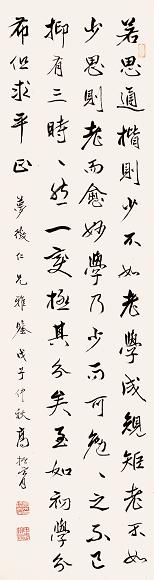 若思通楷則少不如老學成規矩老不如
少思則老而愈妙學乃少而可勉勉之不已
抑有三時時然一變極其分矣至如初學分
布但求平正
夢徵仁兄雅鑒戊子仲秋高振霄